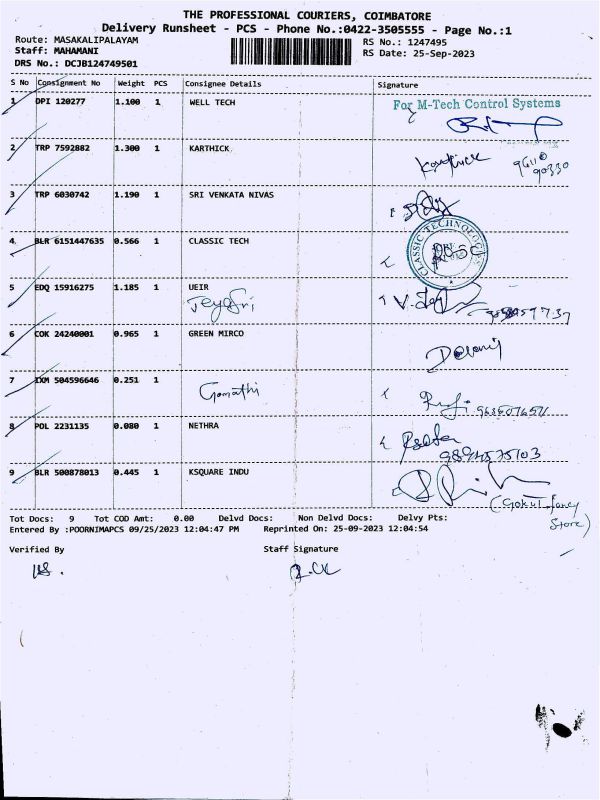 THE PROFESSIONAL COURIERS, COIMBATORE
Delivery Runsheet - PCS - Phone No.:0422-3505555 - Page No.:1
Route: MASAKALIPALAYAM
Staff: MAHAMANI
DRS No.: DCJB124749501
RS No.: 1247495
RS Date: 25-Sep-2023
S No Consignment No Weight PCS Consignee Details Signature
1 DPI 120277 1.100 1 WELL TECH
For M-Tech Control Systems
2 TRP 7592882 1.300 1 KARTHICK
Karthick
90330
3 TRP 6030742 1.190 1 SRI VENKATA NIVAS
4 BLR 6151447635 0.566 1 CLASSIC TECH
CLASSIC TECHNOLOGIES
5 EDQ 15916275 1.185 1 UEIR
Jeyasri
6 COK 24240001 0.965 1 GREEN MIRCO
7 IXM 504596646 0.251 1
Gomathi
8 POL 2231135 0.080 1 NETHRA
9894575103
9 BLR 500878013 0.445 1 KSQUARE INDU
(Gokul fancy
Store)
Tot Docs: 9 Tot COD Amt: 0.00 Delvd Docs: Non Delvd Docs: Delvy Pts:
Entered By :POORNIMAPCS 09/25/2023 12:04:47 PM Reprinted On: 25-09-2023 12:04:54
Verified By Staff Signature